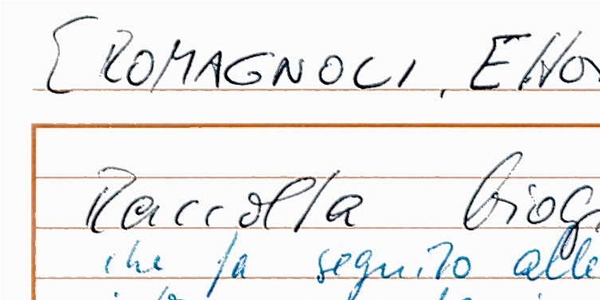 [ROMAGNOLI, Etto
Raccolta biog
che fa seguito alle